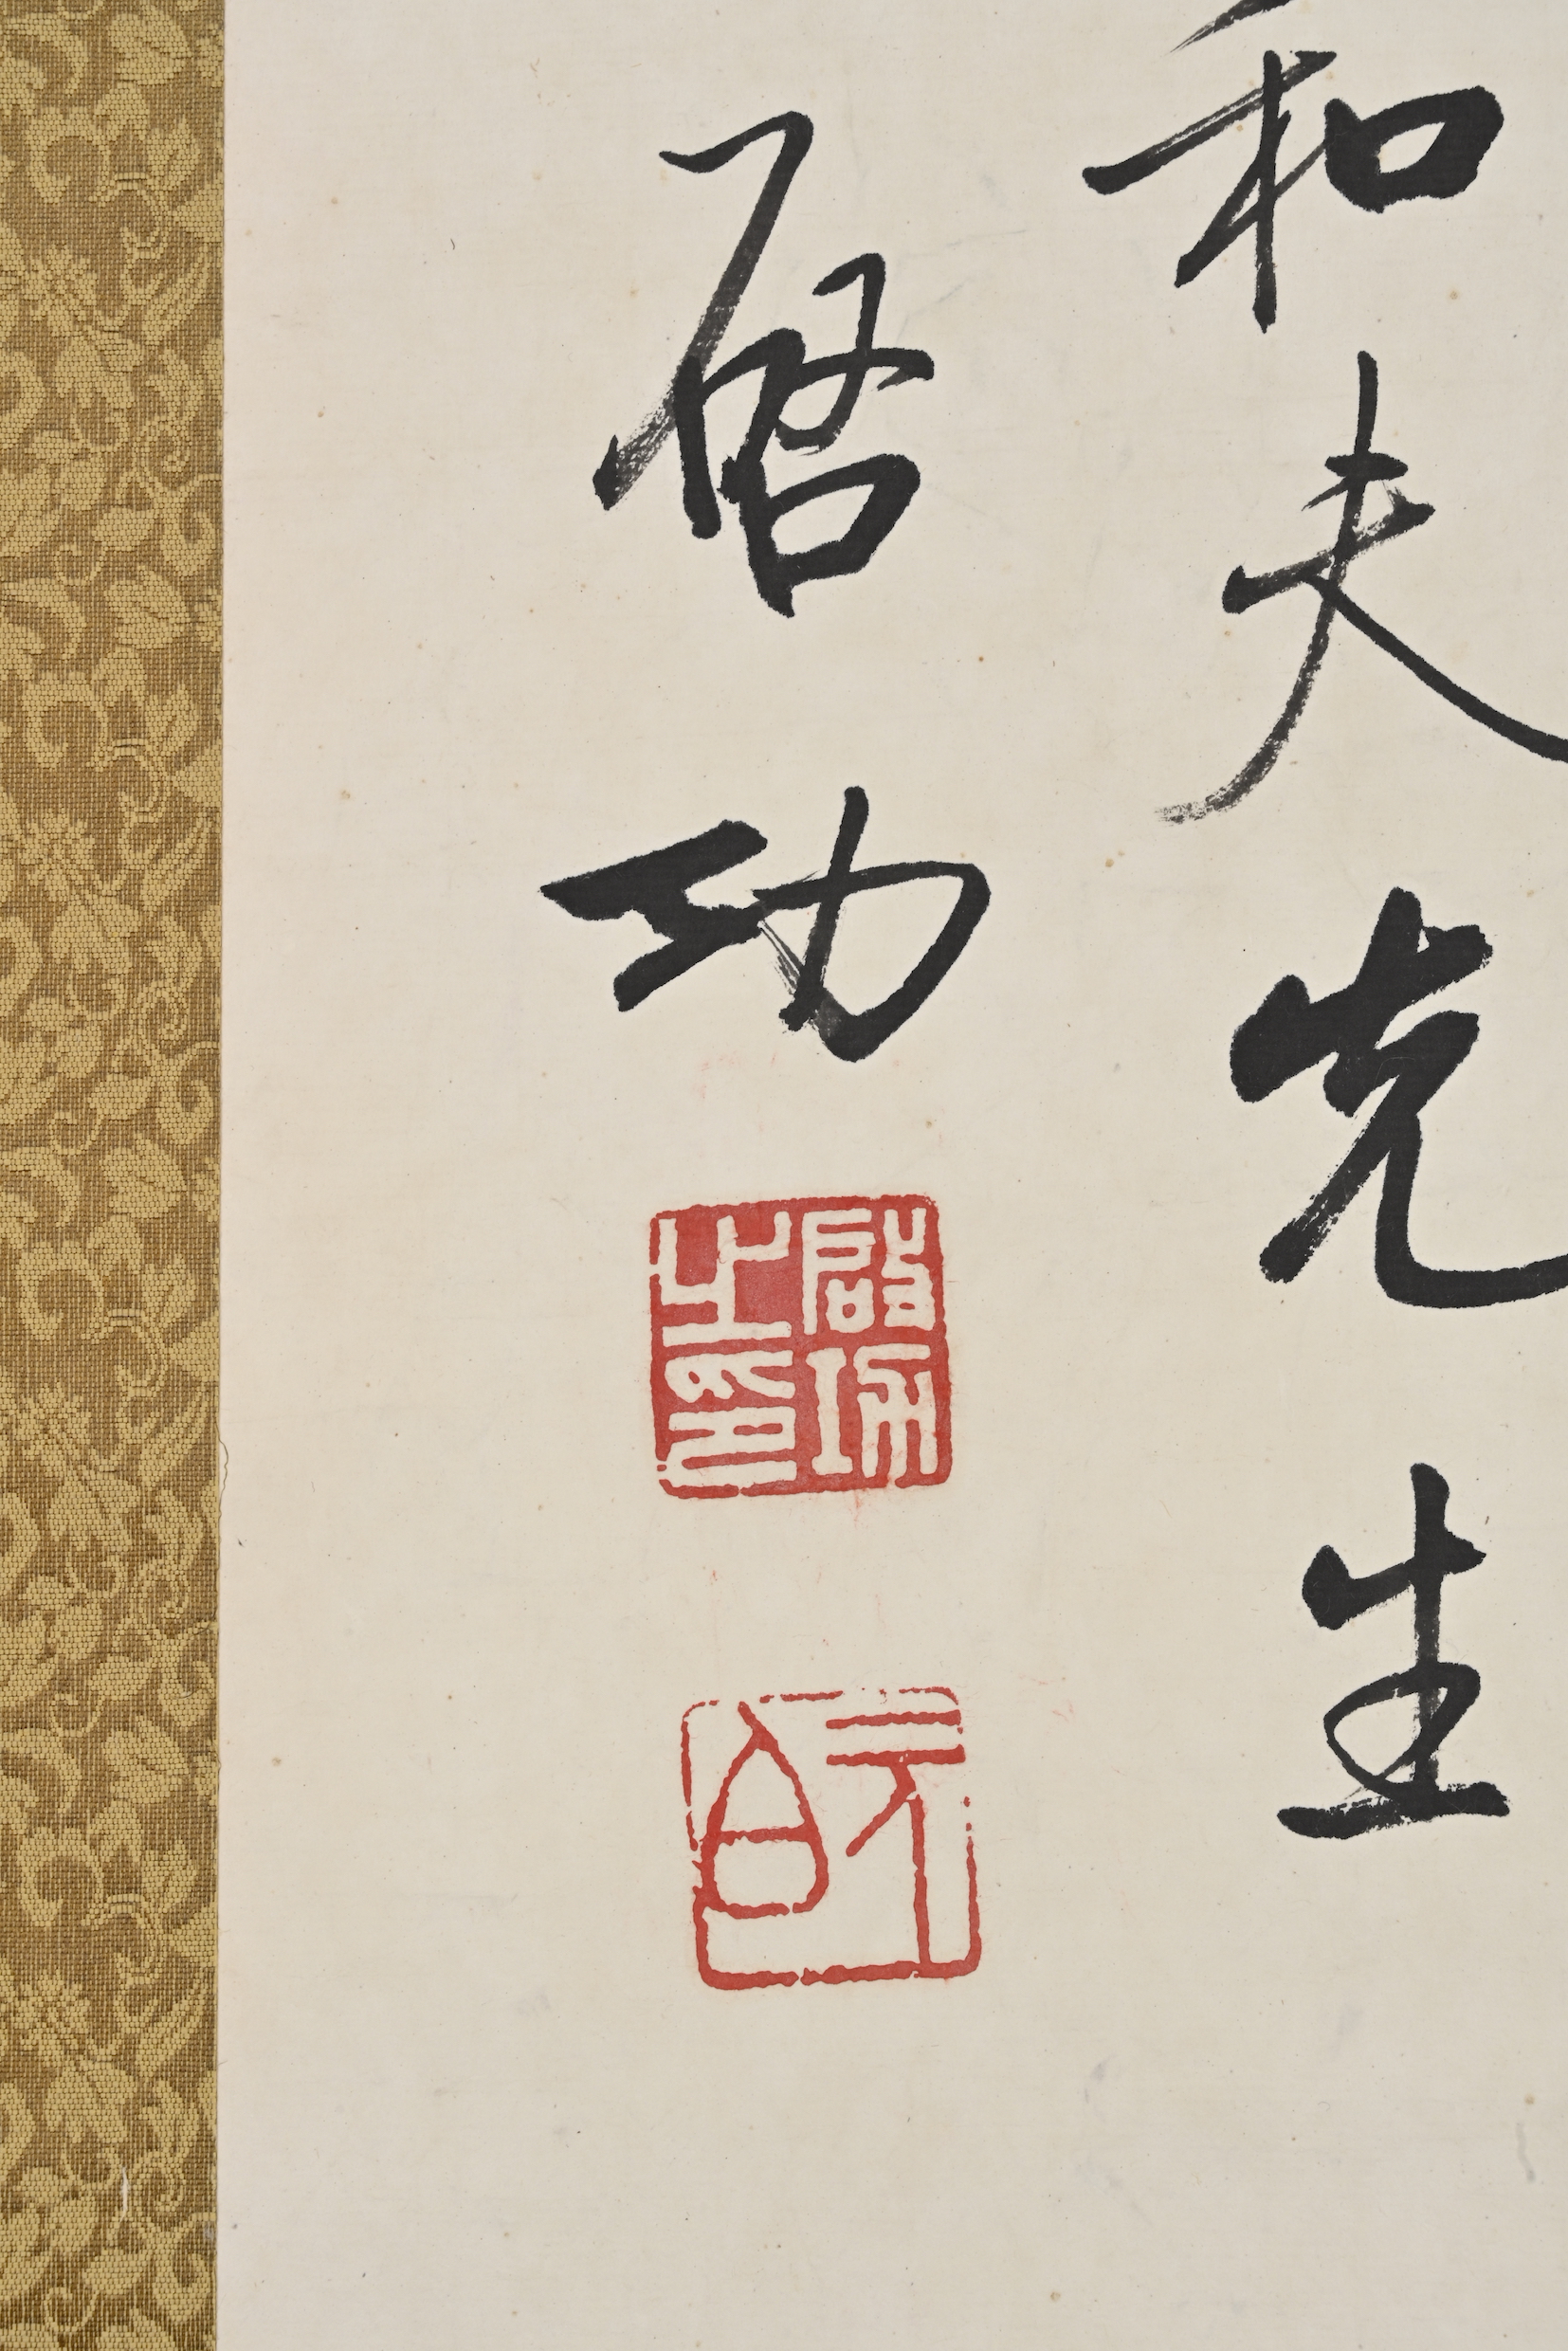 和夫先生
启功
啟功之印
元白